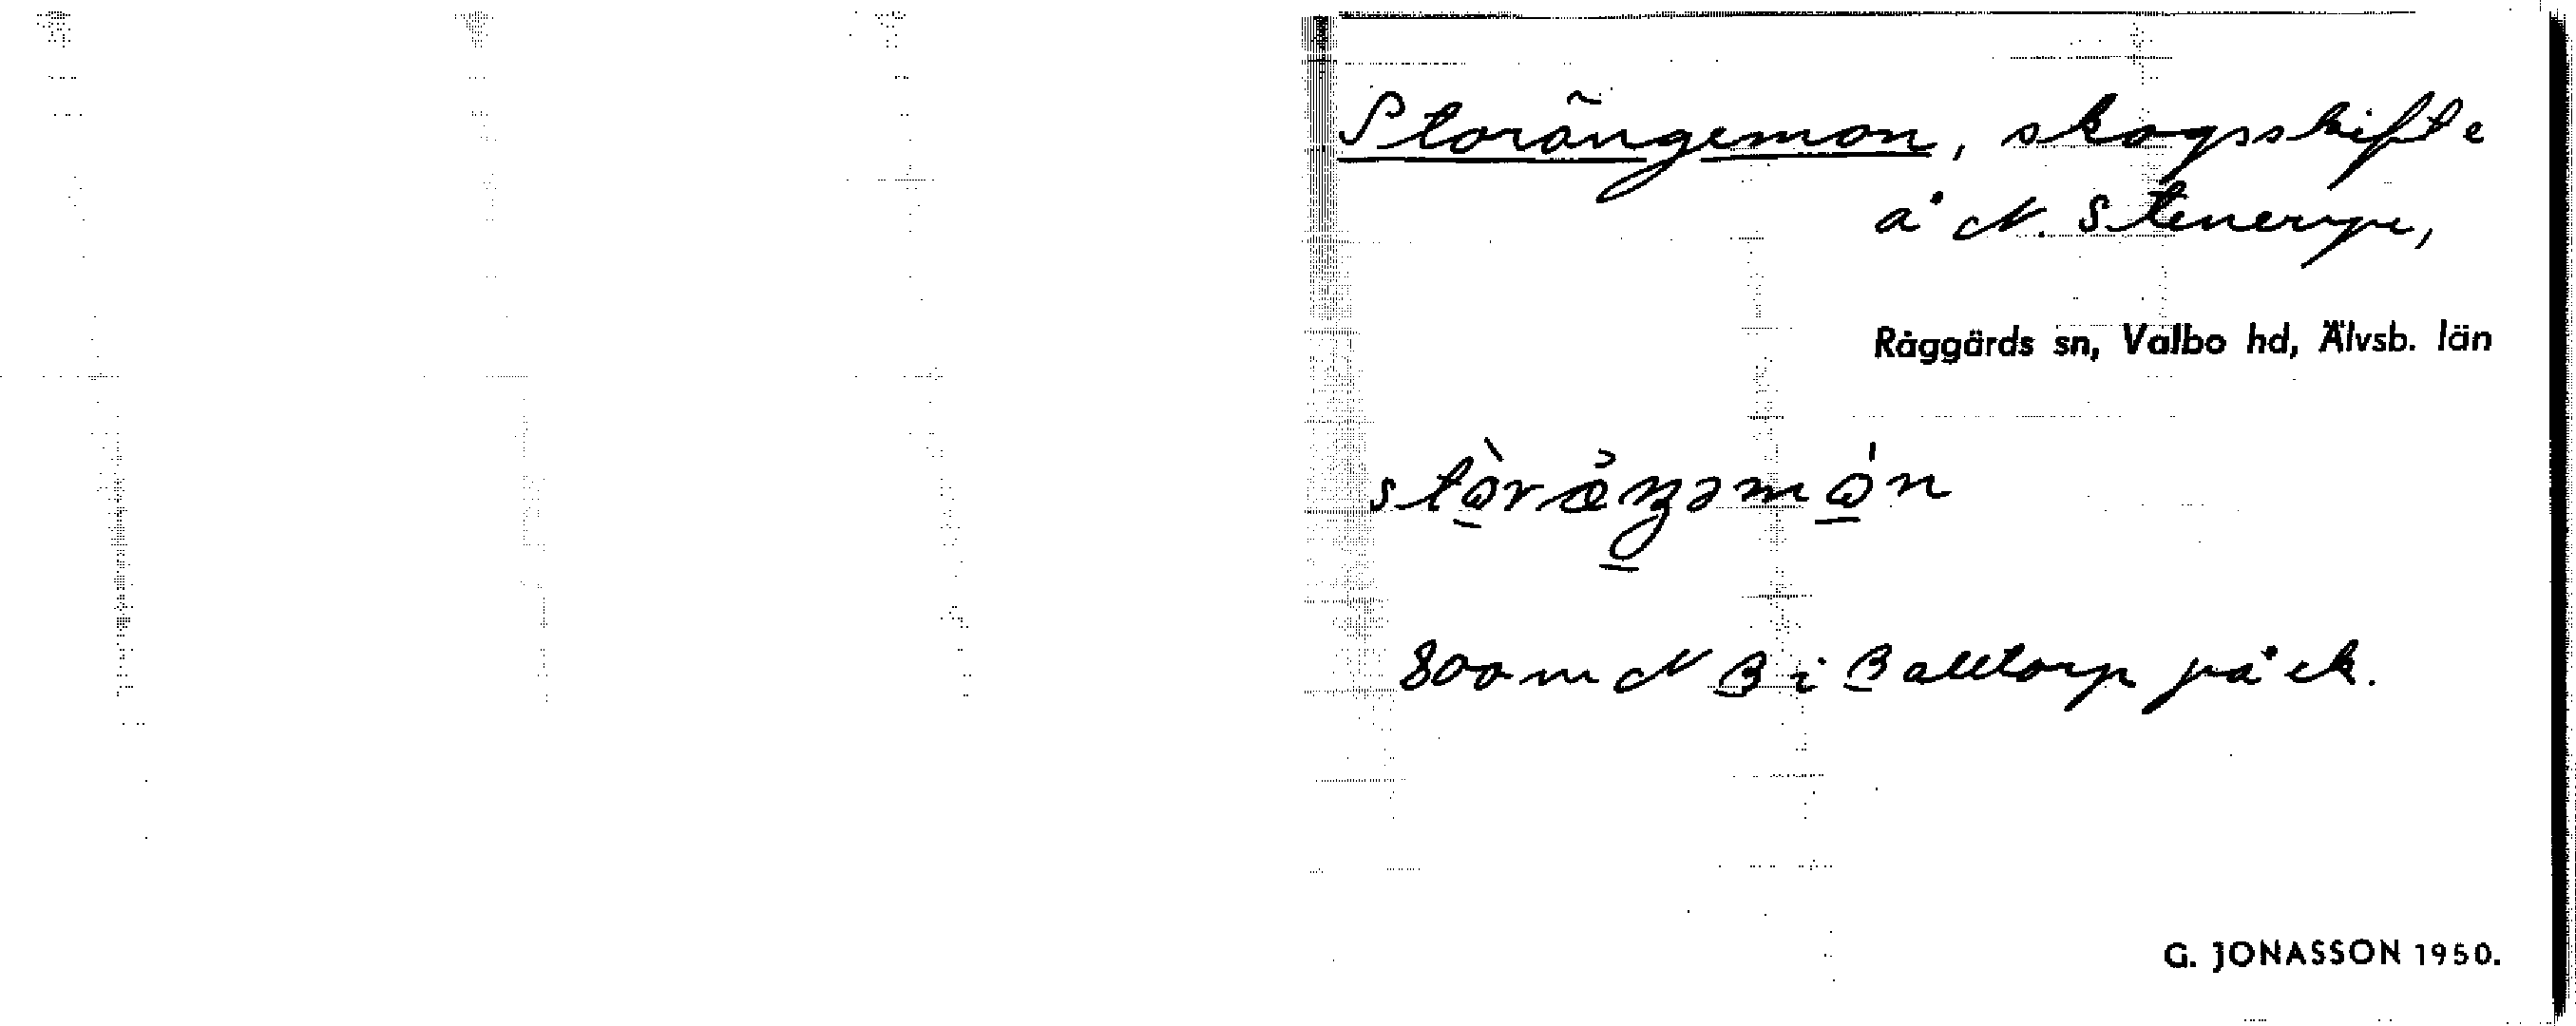 Storängemon, skogsskifte
å N. Stenerype,
Råggärds sn, Valbo hd, Älvsb. län
800 m N B i Balltorp på ek.
G. JONASSON 1950.